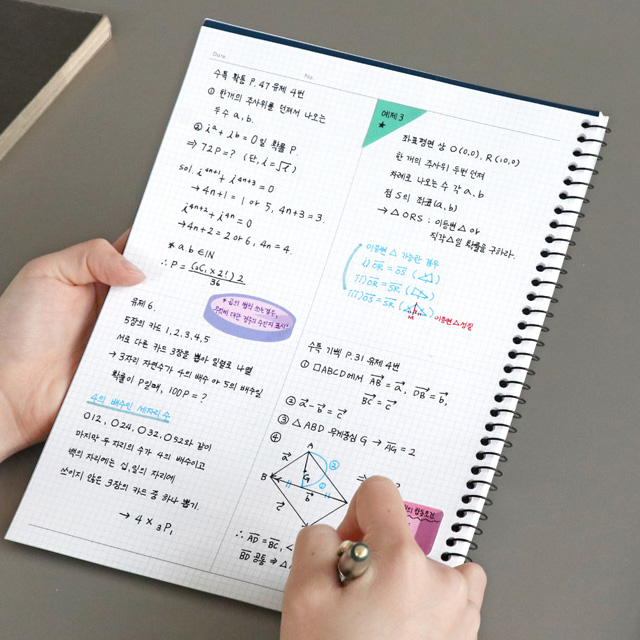 Date.
No.
수특 확통 P.47 유제 4번
① 한개의 주사위를 던져서 나오는
두수 a, b.
② iᵃ + iᵇ = 0 일 확률 P.
⇒ 72P = ? (단, i = √-1)
sol. i⁴ⁿ⁺¹ + i⁴ⁿ⁺³ = 0
→ 4n+1 = 1 or 5, 4n+3 = 3.
i⁴ⁿ⁺² + i⁴ⁿ = 0
→ 4n+2 = 2 or 6, 4n = 4.
* a, b ∈ IN
∴ P = (₂C₁ × 2!) 2 / 36
유제 6.
5장의 카드 1, 2, 3, 4, 5
서로 다른 카드 3장을 뽑아 일렬로 나열
→ 3자리 자연수가 4의 배수 or 5의 배수일
확률이 P일때, 100P = ?
4의 배수인 세자리 수
012, 024, 032, 052와 같이
마지막 두 자리의 수가 4의 배수이고
백의 자리에는 십, 일의 자리에
쓰이지 않은 3장의 카드 중 하나 뽑기.
→ 4 × ₃P₁
예제 3
★
좌표평면 상 O(0,0), R(10,0)
한 개의 주사위 두번 던져
차례로 나오는 수 각 a, b
점 S의 좌표 (a, b)
→ △ORS : 이등변△ or
직각△일 확률을 구하라.
이등변 △ 가능한 경우
i) OR = OS
ii) OR = SR
iii) OS = SR
M
이등변△성질
수특 기벡 P.31 유제 4번
① □ABCD에서 AB = a, DB = b,
BC = c
② a - b = c
③ △ABD 무게중심 G → AG = 2
④
A
a
②
G
①
B
b
c
∴ AD = BC, <
BD 공통 ⇒ △